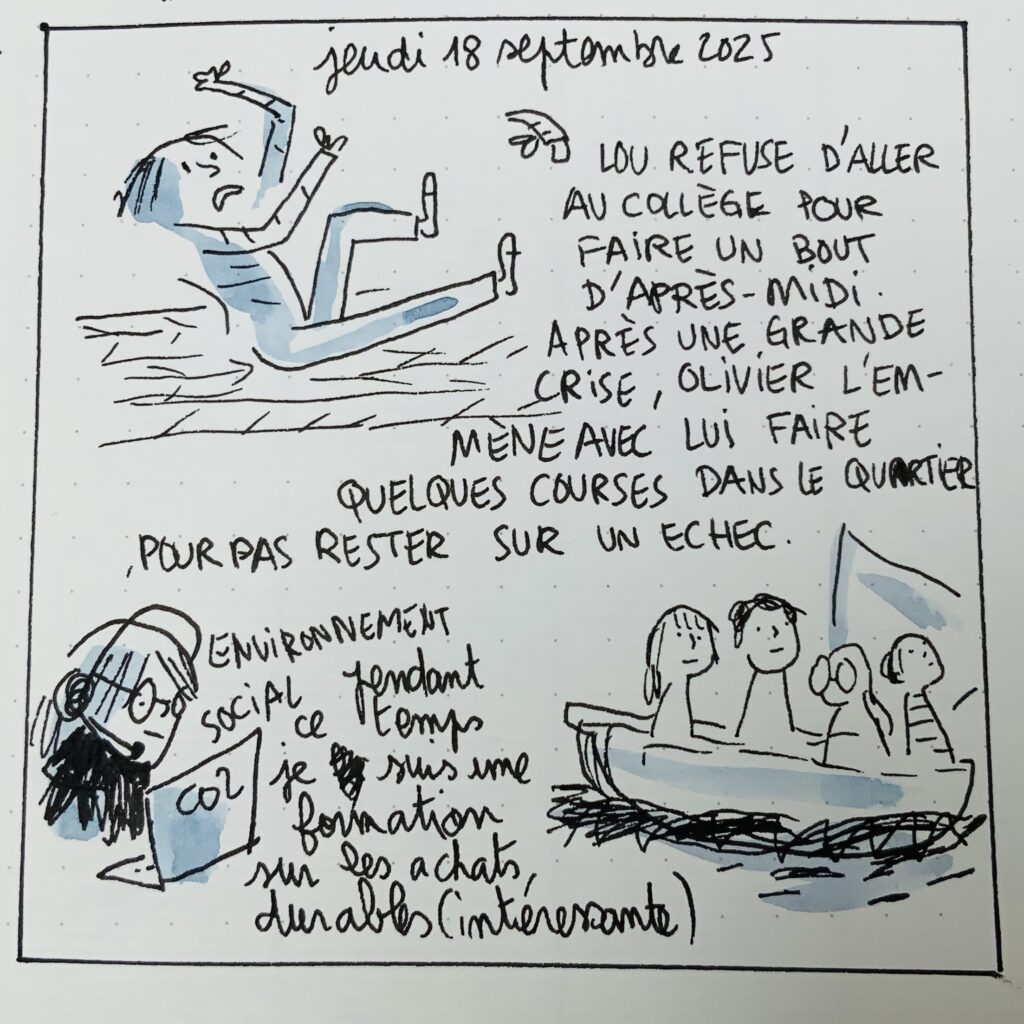 jeudi 18 septembre 2025
LOU REFUSE D'ALLER
AU COLLÈGE POUR
FAIRE UN BOUT
D'APRÈS-MIDI.
APRÈS UNE GRANDE
CRISE, OLIVIER L'EM-
MÈNE AVEC LUI FAIRE
QUELQUES COURSES DANS LE QUARTIER
POUR PAS RESTER SUR UN ECHEC.
ENVIRONNEMENT
SOCIAL
CO2
pendant
ce temps
je suis une
formation
sur les achats
durables (intéressante)